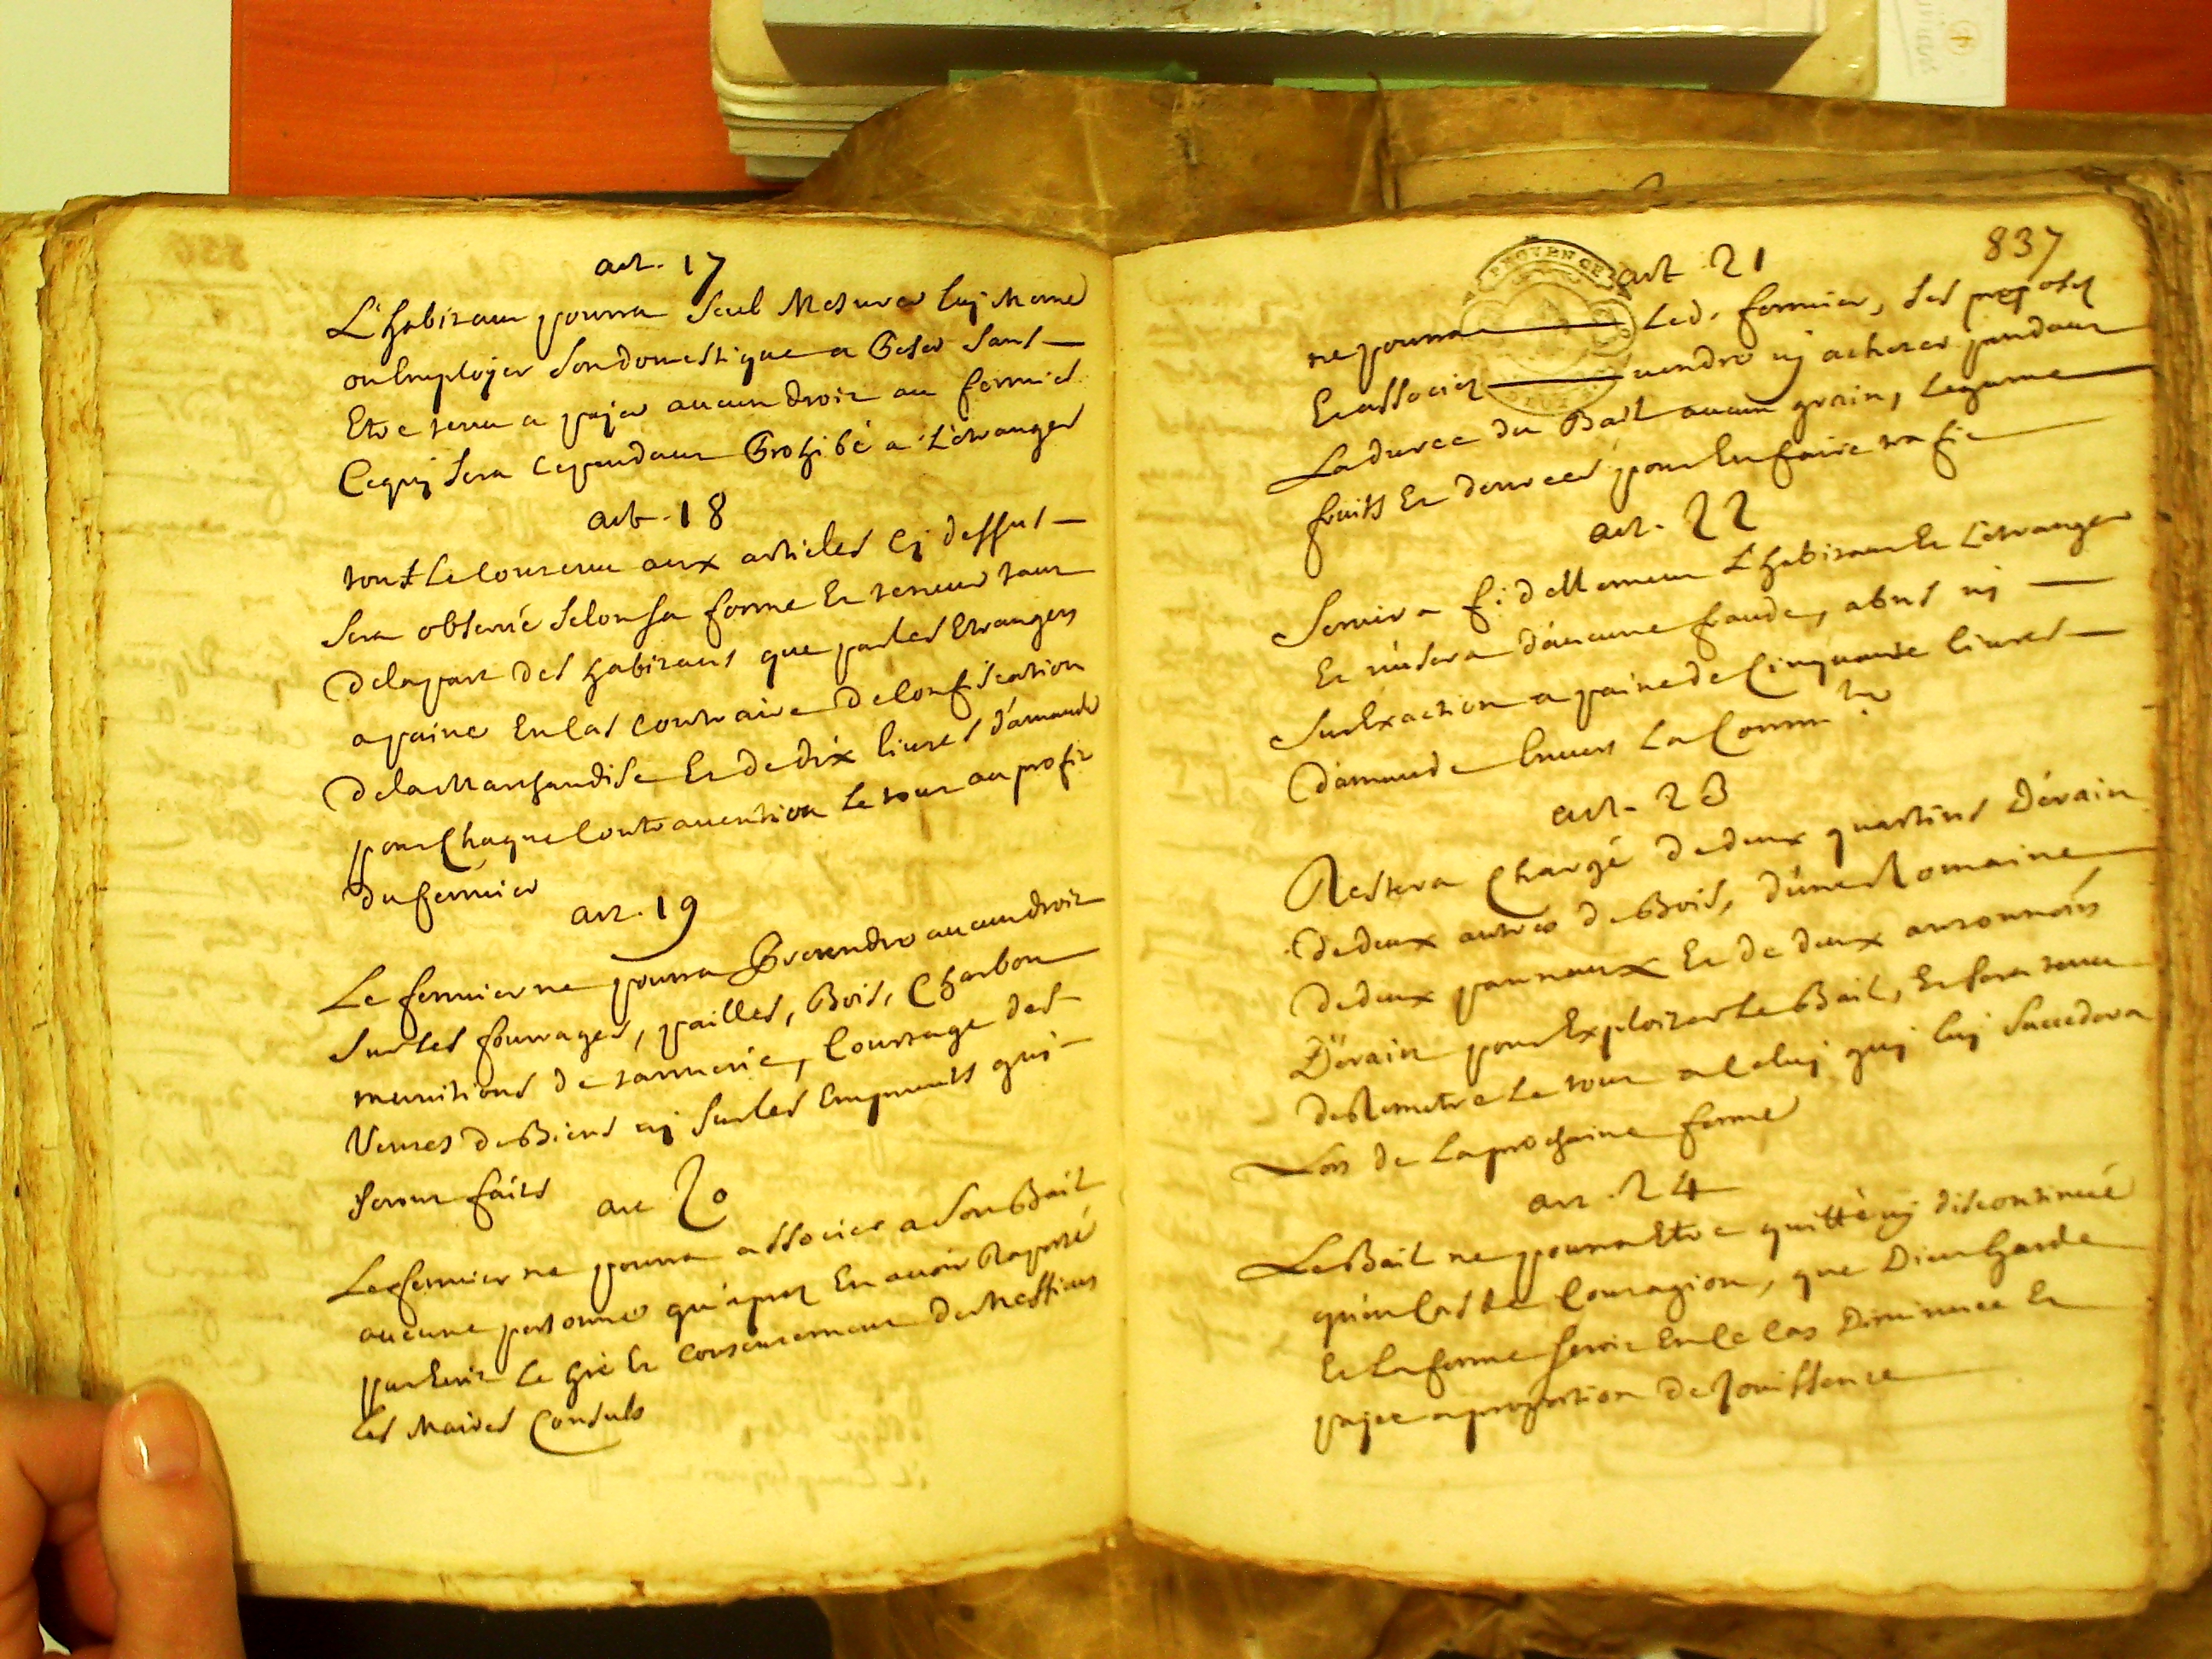 art. 17
L'habitant pourra seul Mesurer luy Meme
ou Employer son domestique a Peser sans
Etre tenu a payer aucun droit au fermier
Ce quj sera cependant Prohibé a L'etranger
art. 18
tout Le Contenu aux articles cy dessus
sera observé selon sa forme Et teneur tant
de la part des habitans que par les Etrangers
a paine En Cas Contraire de Confiscation
de la Marchandise Et de dix livres d'amande
pour Chaque Contravention Le tout au profit
du fermier
art. 19
Le fermier ne pourra Pretendre aucun droit
sur les fourrages, pailles, Bois, Charbon
munitions de tannerie, Courtage des
Ventes de Biens nj sur les Emprunts qui
seront faits
art 20
Le fermier ne pourra associer a son Bail
aucune personne qu'apres En avoir Raporté
par Ecrit Le Gré Et Consentement de Messieurs
Les Maires Consuls
837
PROVENCE
art 21
ne pourra Led. fermier, ses preposes
Et associes vendre nj acheter pendant
La duree du Bail aucun grain, Legume
fruits Et denrees pour En faire trafic
art. 22
Servira fidellement L'habitant Et L'etranger
Et n'usera d'aucune fraude, abus nj
sur Exaction a paine de Cinquante livres
d'amande Envers La Commté
art. 23
Restera Chargé de deux quartins d'érain
de deux autres de Bois, d'une Romaine
de deux pannaux Et de deux
D'erain pour Exploiter Le Bail, Et sera tenu
de Remetre Le tout a Celuj quj luj succedera
Lors de La prochaine ferme
art. 24
Le Bail ne pourra Etre quitté nj discontinué
qu'en Cas de Contagion, que Dieu Garde
Et La ferme seroit En Ce Cas Diminuee Et
payee a proportion de Jouissence